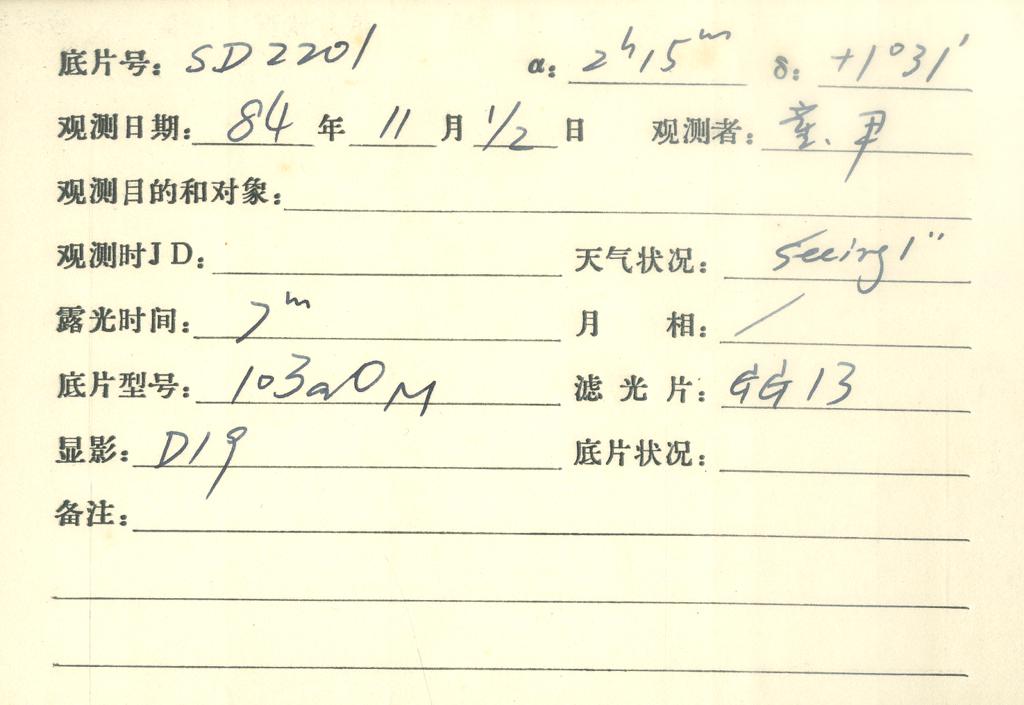 底片号: SD2201 α: 2ʰ15ᵐ δ: +1°31′
观测日期: 84 年 11 月 1/2 日 观测者:
观测目的和对象:
观测时JD: 天气状况: Seeing 1″
露光时间: 7ᵐ 月 相: /
底片型号: 103aO M 滤光片: GG13
显影: D19 底片状况:
备注: